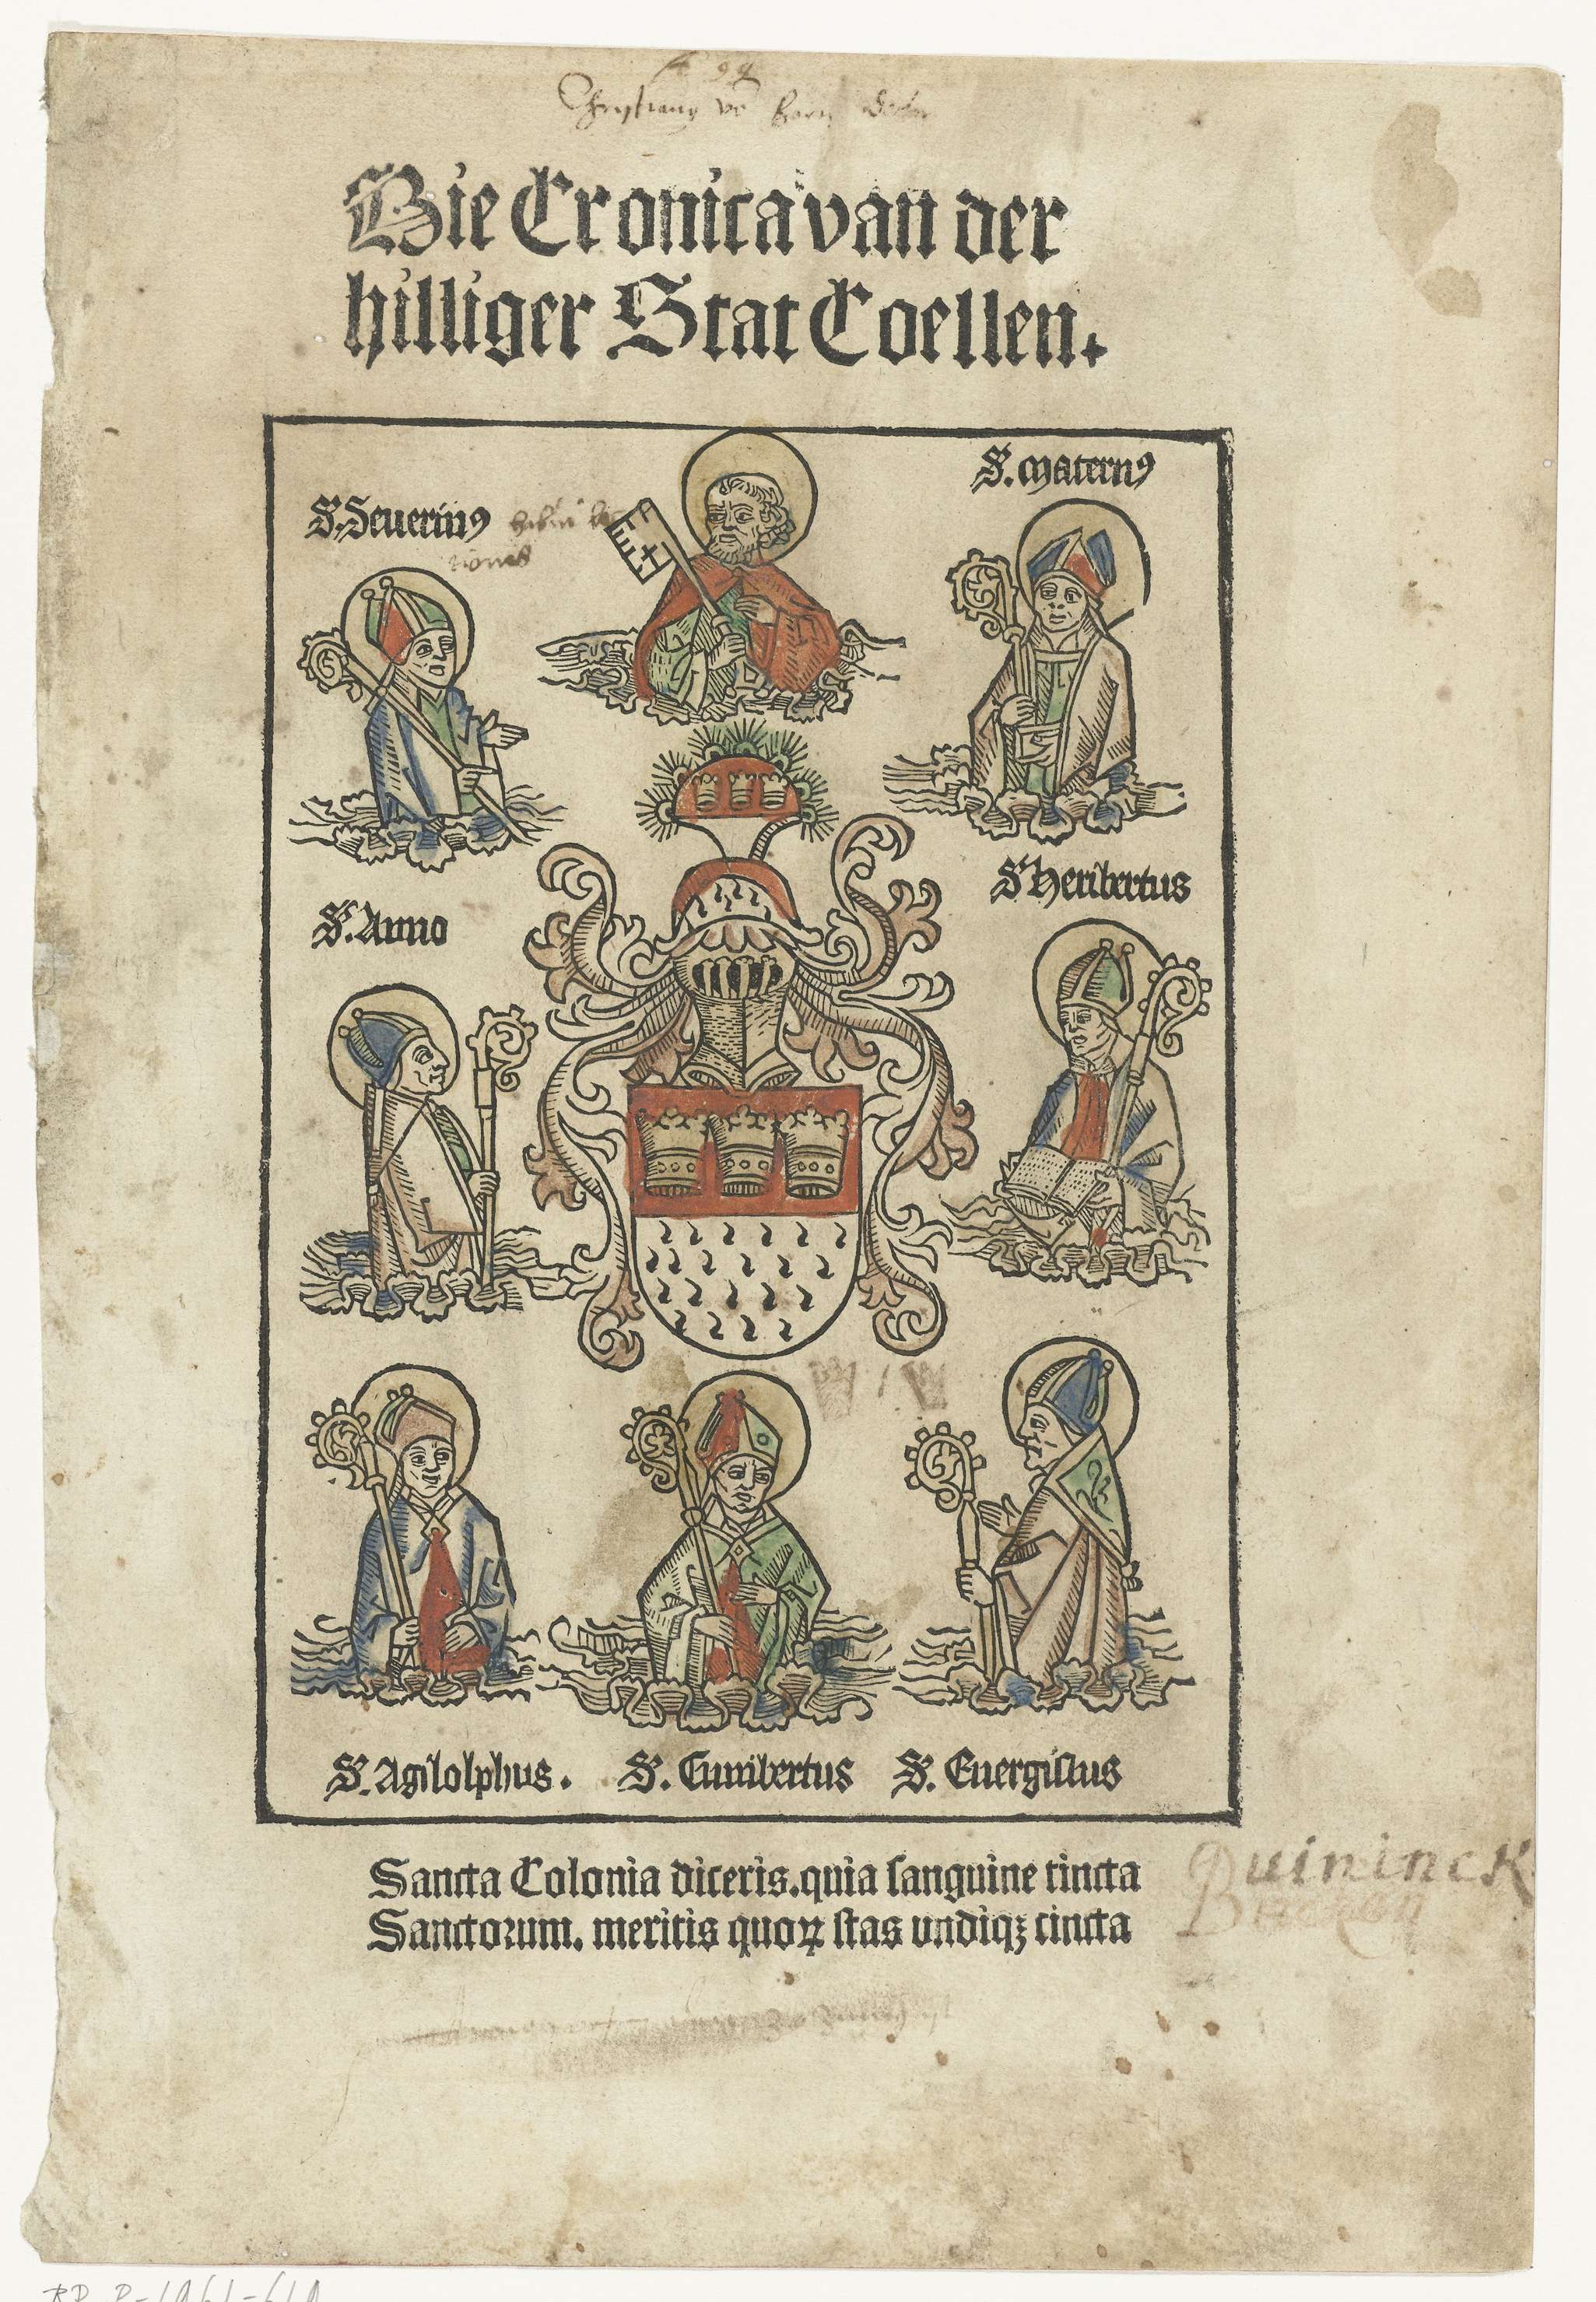 Die Cronica van der
hilliger Stat Coellen.
S. Seuerinꝰ
S. Maternꝰ
S. Anno
S. Heribertus
S. Agilolphus.
S. Cunibertus
S. Euergislus
Sancta Colonia diceris. quia sanguine tincta
Sanctorum. meritis quoꝝ stas vndiqꝫ cincta
Quininck
RP-P-1961-610